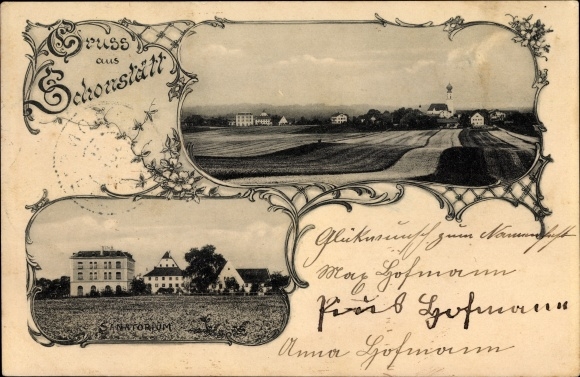 Gruss
aus
Schonstätt
SANATORIUM
Glückwunsch zum Namensfest
Max Hofmann
Pius Hofmann
Anna Hofmann